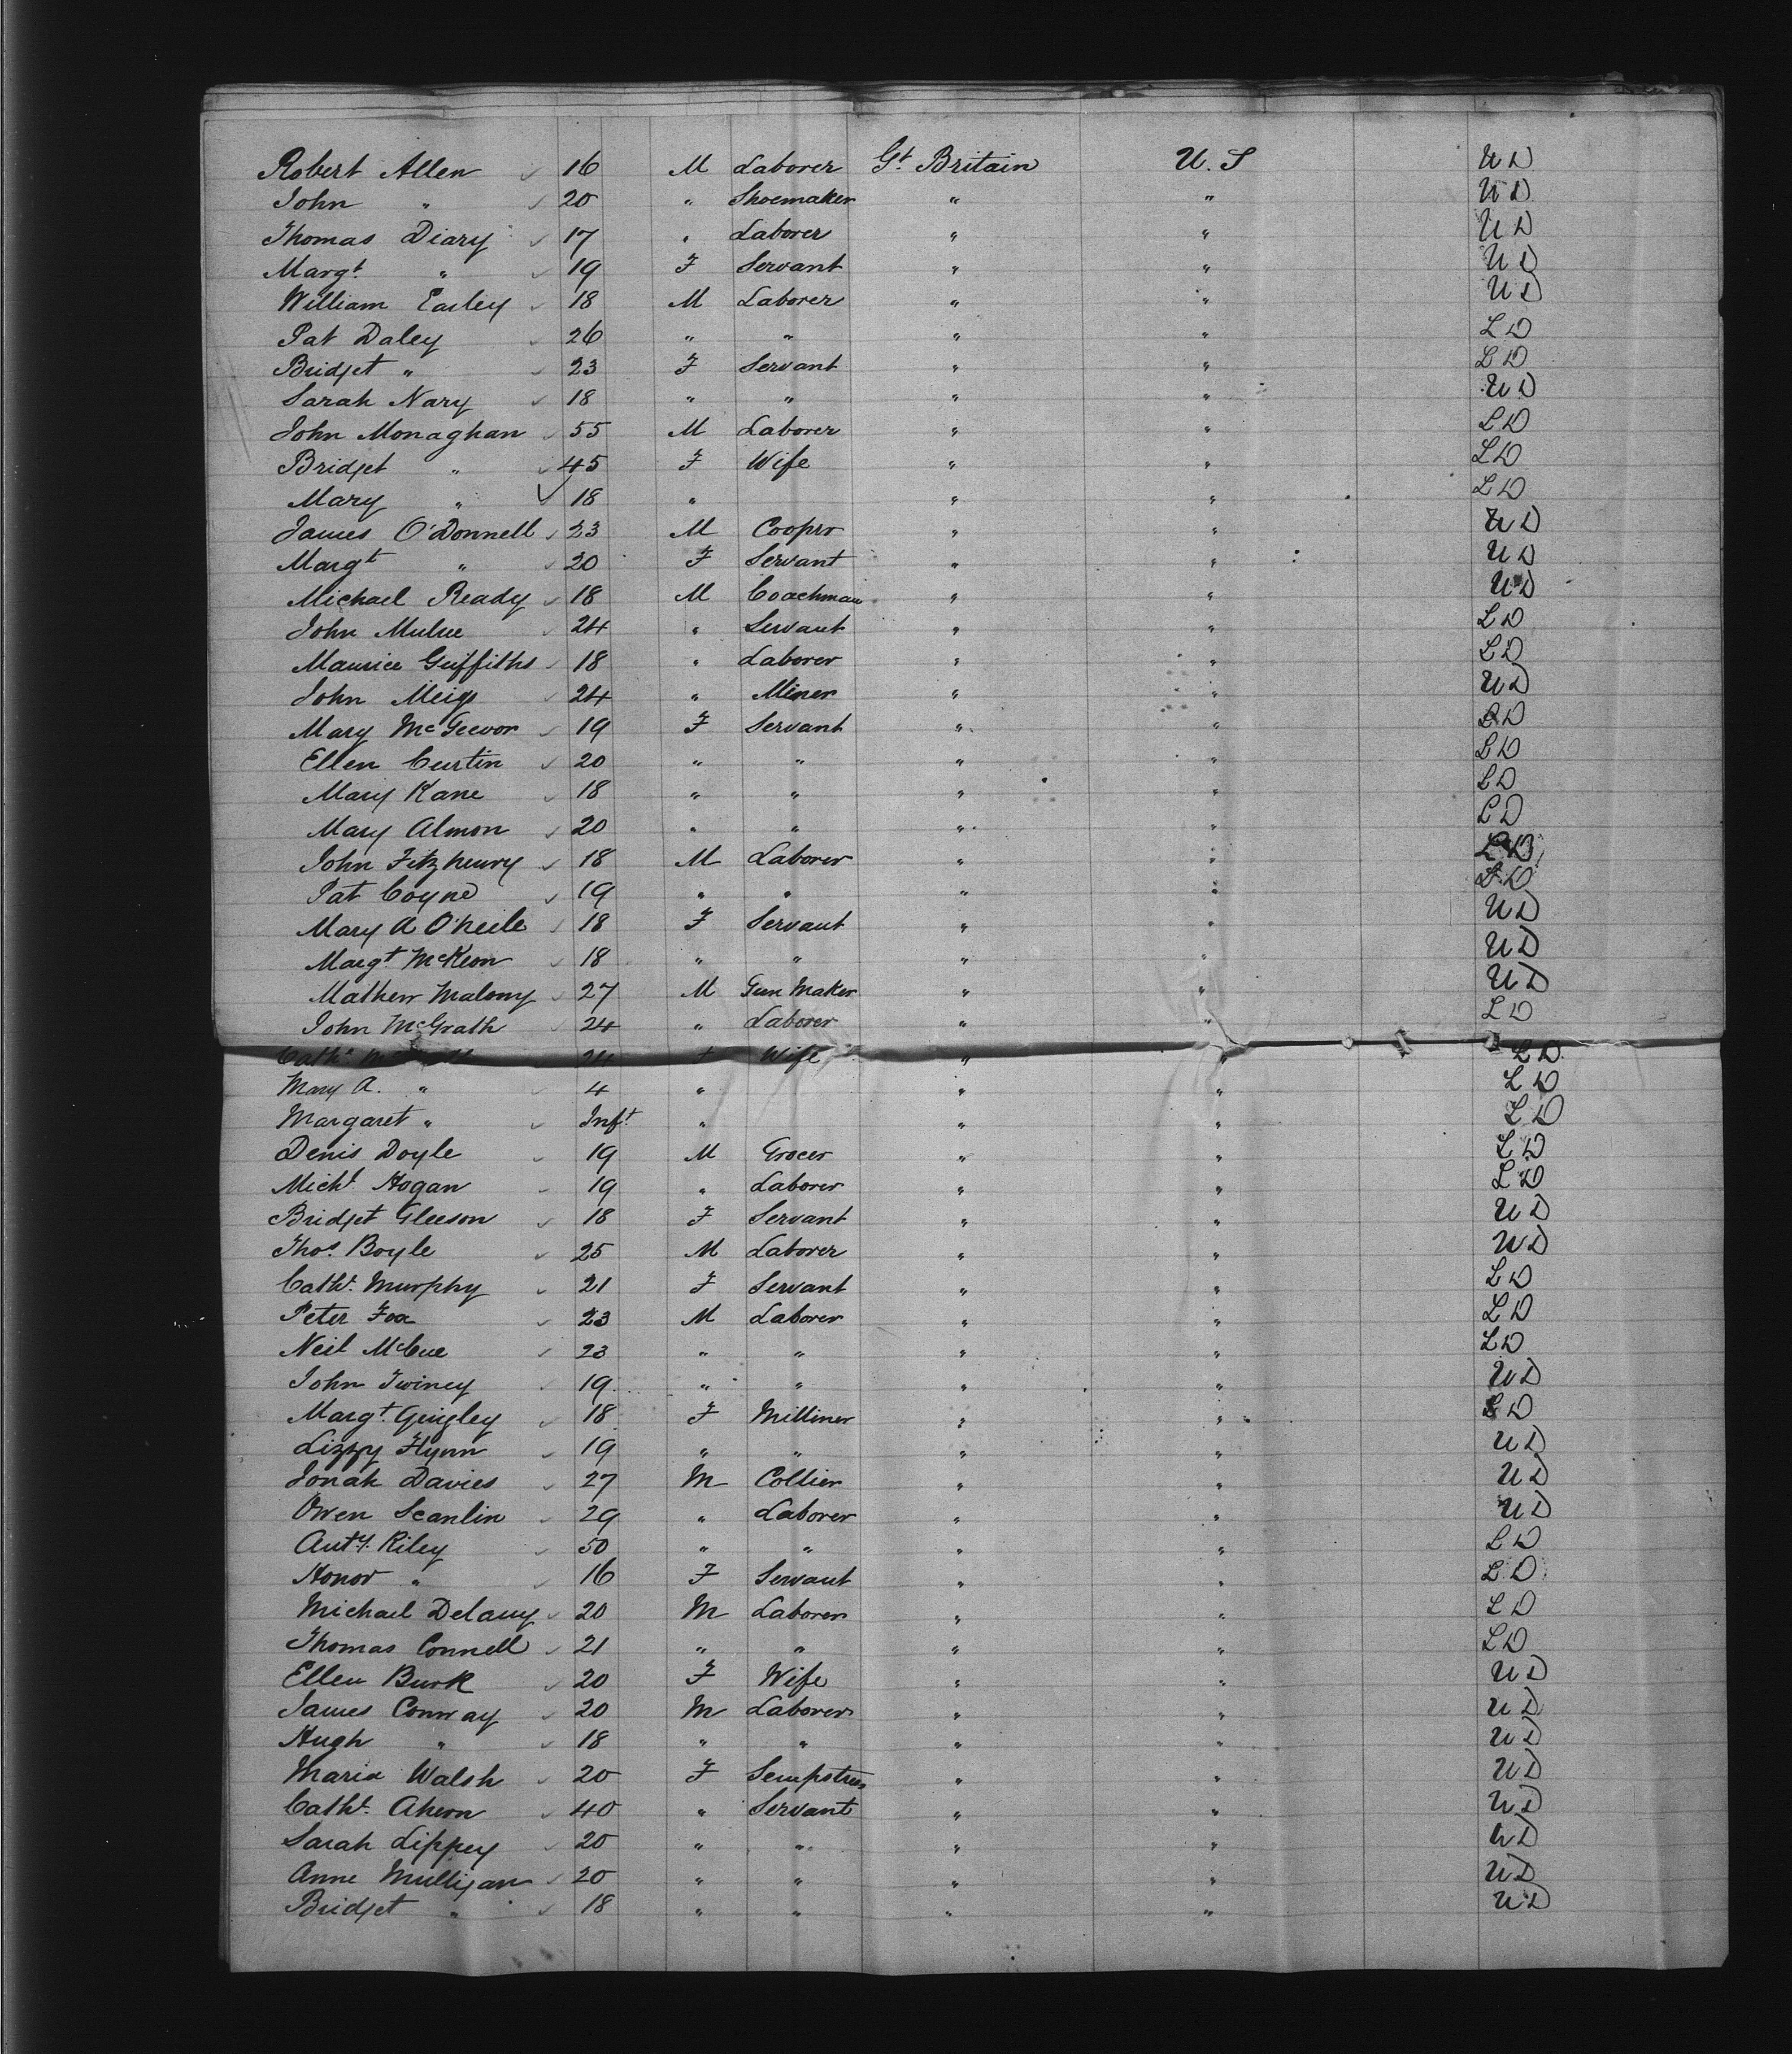 Robert Allen 16 M Laborer Gt. Britain U.S U D
John " 20 " Shoemaker " " U D
Thomas Diary 17 " Laborer " " U D
Margt " 19 F Servant " " U D
William Earley 18 M Laborer " " U D
Pat Daley 26 " " " " L D
Bridget " 23 F Servant " " L D
Sarah Nary 18 " " " " U D
John Monaghan 55 M Laborer " " L D
Bridget " 45 F Wife " " L D
Mary " 18 " " " L D
James O'Donnell 23 M Coopr " " U D
Margt " 20 F Servant " " U D
Michael Ready 18 M Coachman " " U D
John 24 " Servant " " L D
Maurice Griffiths 18 " Laborer " " L D
John Meigs 24 " Miner " " U D
Mary McGeevor 19 F Servant " " L D
Ellen Curtin 20 " " " " L D
Mary Kane 18 " " " " L D
Mary Almon 20 " " " " L D
John Fitzhenry 18 M Laborer " " L D
Pat Coyne 19 " " " " L D
Mary A O'Neile 18 F Servant " " U D
Margt McKeon 18 " " " " U D
Mathew Malony 27 M Gun Maker " " U D
John McGrath 24 " Laborer " " L D
Wife " " L D
Mary A. " 4 " " " L D
Margaret " Inft " " " L D
Denis Doyle 19 M Grocer " " L D
Michl. Hogan 19 " Laborer " " L D
Bridget Gleeson 18 F Servant " " U D
Thos. Boyle 25 M Laborer " " U D
Cath. Murphy 21 F Servant " " L D
Peter Fox 23 M Laborer " " L D
Neil McCue 23 " " " " L D
John Twiney 19 " " " " U D
Margt Quigley 18 F Milliner " " L D
Lizzy Flynn 19 " " " " U D
Jonah Davies 27 M Collier " " U D
Owen Scanlin 29 " Laborer " " U D
Anty. Riley 50 " " " " L D
Honor " 16 F Servant " " L D
Michael Delany 20 M Laborer " " L D
Thomas Connell 21 " " " " L D
Ellen Burk 20 F Wife " " U D
James Conway 20 M Laborer " " U D
Hugh " 18 " " " " U D
Maria Walsh 20 F Sempstress " " U D
Cath. Ahern 40 " Servant " " U D
Sarah Lippey 20 " " " " U D
Anne Mulligan 20 " " " " U D
Bridget " 18 " " " " U D